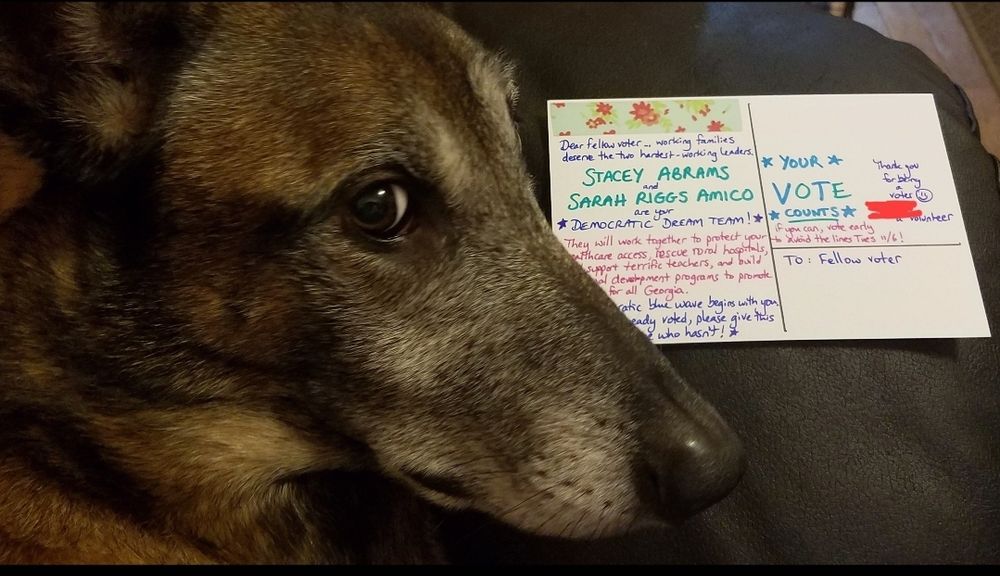 Dear fellow voter... working families
deserve the two hardest-working leaders.
STACEY ABRAMS
and
SARAH RIGGS AMICO
are your
★ DEMOCRATIC DREAM TEAM! ★
They will work together to protect your
access, rescue rural hospitals,
support terrific teachers, and build
development programs to promote
for all Georgia.
blue wave begins with you
voted, please give this
who hasn't! ★
★ YOUR ★
VOTE
★ COUNTS ★
if you can, vote early
to avoid the lines Tues 11/6!
Thank you
for being
a
voter ☺
a volunteer
TO: Fellow voter